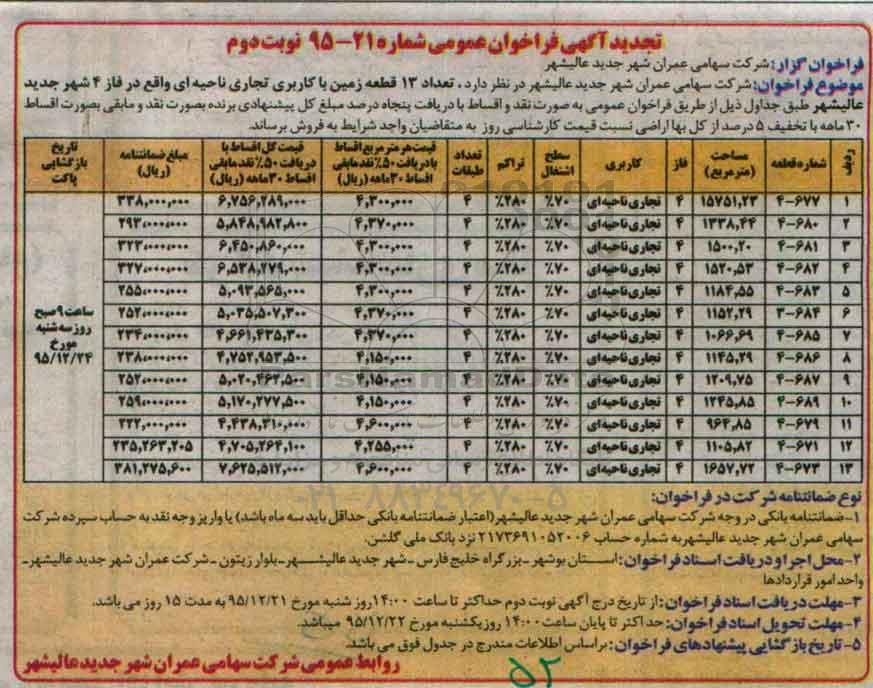 تجدید آگهی فراخوان عمومی شماره ۲۱-۹۵ نوبت دوم
فراخوان گزار: شرکت سهامی عمران شهر جدید عالیشهر
موضوع فراخوان: شرکت سهامی عمران شهر جدید عالیشهر در نظر دارد، تعداد ۱۳ قطعه زمین با کاربری تجاری ناحیه ای واقع در فاز ۴ شهر جدید
عالیشهر طبق جداول ذیل از طریق فراخوان عمومی به صورت نقد و اقساط با دریافت پنجاه درصد مبلغ کل پیشنهادی برنده بصورت نقد و مابقی بصورت اقساط
۳۰ ماهه با تخفیف ۵ درصد از کل بها اراضی نسبت قیمت کارشناسی روز به متقاضیان واجد شرایط به فروش برساند.
ردیف | شماره قطعه | مساحت (مترمربع) | فاز | کاربری | سطح اشتغال | تراکم | تعداد طبقات | قیمت هر متر مربع اقساط با دریافت ۵۰٪ نقد مابقی اقساط ۳۰ ماهه (ریال) | قیمت کل اقساط با دریافت ۵۰٪ نقد مابقی اقساط ۳۰ ماهه (ریال) | مبلغ ضمانتنامه (ریال) | تاریخ بازگشایی پاکت
۱ | ۴-۶۷۷ | ۱۵۷۵۱,۲۳ | ۴ | تجاری ناحیه ای | ٪۷۰ | ٪۲۸۰ | ۴ | ۴,۳۰۰,۰۰۰ | ۶,۷۵۶,۲۸۹,۰۰۰ | ۳۳۸,۰۰۰,۰۰۰
۲ | ۴-۶۸۰ | ۱۳۳۸,۴۴ | ۴ | تجاری ناحیه ای | ٪۷۰ | ٪۲۸۰ | ۴ | ۴,۳۷۰,۰۰۰ | ۵,۸۴۸,۹۸۲,۸۰۰ | ۲۹۳,۰۰۰,۰۰۰
۳ | ۴-۶۸۱ | ۱۵۰۰,۲۰ | ۴ | تجاری ناحیه ای | ٪۷۰ | ٪۲۸۰ | ۴ | ۴,۳۰۰,۰۰۰ | ۶,۴۵۰,۸۶۰,۰۰۰ | ۳۲۳,۰۰۰,۰۰۰
۴ | ۴-۶۸۲ | ۱۵۲۰,۵۳ | ۴ | تجاری ناحیه ای | ٪۷۰ | ٪۲۸۰ | ۴ | ۴,۳۰۰,۰۰۰ | ۶,۵۳۸,۲۷۹,۰۰۰ | ۳۲۷,۰۰۰,۰۰۰
۵ | ۴-۶۸۳ | ۱۱۸۴,۵۵ | ۴ | تجاری ناحیه ای | ٪۷۰ | ٪۲۸۰ | ۴ | ۴,۳۰۰,۰۰۰ | ۵,۰۹۳,۵۶۵,۰۰۰ | ۲۵۵,۰۰۰,۰۰۰
۶ | ۳-۶۸۴ | ۱۱۵۲,۲۹ | ۴ | تجاری ناحیه ای | ٪۷۰ | ٪۲۸۰ | ۴ | ۴,۳۷۰,۰۰۰ | ۵,۰۳۵,۵۰۷,۳۰۰ | ۲۵۲,۰۰۰,۰۰۰
۷ | ۴-۶۸۵ | ۱۰۶۶,۶۹ | ۴ | تجاری ناحیه ای | ٪۷۰ | ٪۲۸۰ | ۴ | ۴,۳۷۰,۰۰۰ | ۴,۶۶۱,۴۳۵,۳۰۰ | ۲۳۴,۰۰۰,۰۰۰
۸ | ۴-۶۸۶ | ۱۱۴۵,۲۹ | ۴ | تجاری ناحیه ای | ٪۷۰ | ٪۲۸۰ | ۴ | ۴,۱۵۰,۰۰۰ | ۴,۷۵۲,۹۵۳,۵۰۰ | ۲۳۸,۰۰۰,۰۰۰
۹ | ۴-۶۸۷ | ۱۲۰۹,۷۵ | ۴ | تجاری ناحیه ای | ٪۷۰ | ٪۲۸۰ | ۴ | ۴,۱۵۰,۰۰۰ | ۵,۰۲۰,۴۶۲,۵۰۰ | ۲۵۲,۰۰۰,۰۰۰
۱۰ | ۴-۶۸۹ | ۱۲۴۵,۸۵ | ۴ | تجاری ناحیه ای | ٪۷۰ | ٪۲۸۰ | ۴ | ۴,۱۵۰,۰۰۰ | ۵,۱۷۰,۲۷۷,۵۰۰ | ۲۵۹,۰۰۰,۰۰۰
۱۱ | ۴-۶۷۹ | ۹۶۴,۸۵ | ۴ | تجاری ناحیه ای | ٪۷۰ | ٪۲۸۰ | ۴ | ۴,۶۰۰,۰۰۰ | ۴,۴۳۸,۳۱۰,۰۰۰ | ۲۲۲,۰۰۰,۰۰۰
۱۲ | ۴-۶۷۱ | ۱۱۰۵,۸۲ | ۴ | تجاری ناحیه ای | ٪۷۰ | ٪۲۸۰ | ۴ | ۴,۲۵۵,۰۰۰ | ۴,۷۰۵,۲۶۴,۱۰۰ | ۲۳۵,۲۶۳,۲۰۵
۱۳ | ۴-۶۷۳ | ۱۶۵۷,۷۲ | ۴ | تجاری ناحیه ای | ٪۷۰ | ٪۲۸۰ | ۴ | ۴,۶۰۰,۰۰۰ | ۷,۶۲۵,۵۱۲,۰۰۰ | ۳۸۱,۲۷۵,۶۰۰
ساعت ۹ صبح
روز سه شنبه
مورخ
۹۵/۱۲/۲۴
نوع ضمانتنامه شرکت در فراخوان:
۱-ضمانتنامه بانکی در وجه شرکت سهامی عمران شهر جدید عالیشهر (اعتبار ضمانتنامه بانکی حداقل باید سه ماه باشد) یا واریز وجه نقد به حساب سپرده شرکت
سهامی عمران شهر جدید عالیشهر به شماره حساب ۲۱۷۳۶۹۱۰۵۲۰۰۶ نزد بانک ملی گلشن.
۲-محل اجرا و دریافت اسناد فراخوان: استان بوشهر -بزرگراه خلیج فارس -شهر جدید عالیشهر -بلوار زیتون -شرکت عمران شهر جدید عالیشهر-
واحد امور قراردادها
۳-مهلت دریافت اسناد فراخوان: از تاریخ درج آگهی نوبت دوم حداکثر تا ساعت ۱۴:۰۰ روز شنبه مورخ ۹۵/۱۲/۲۱ به مدت ۱۵ روز می باشد.
۴-مهلت تحویل اسناد فراخوان: حداکثر تا پایان ساعت ۱۴:۰۰ روز یکشنبه مورخ ۹۵/۱۲/۲۲ میباشد.
۵-تاریخ بازگشایی پیشنهادهای فراخوان: براساس اطلاعات مندرج در جدول فوق می باشد.
روابط عمومی شرکت سهامی عمران شهر جدید عالیشهر
۵۲
۰۲۱-۸۸۳۴۹۶۷۰-۵